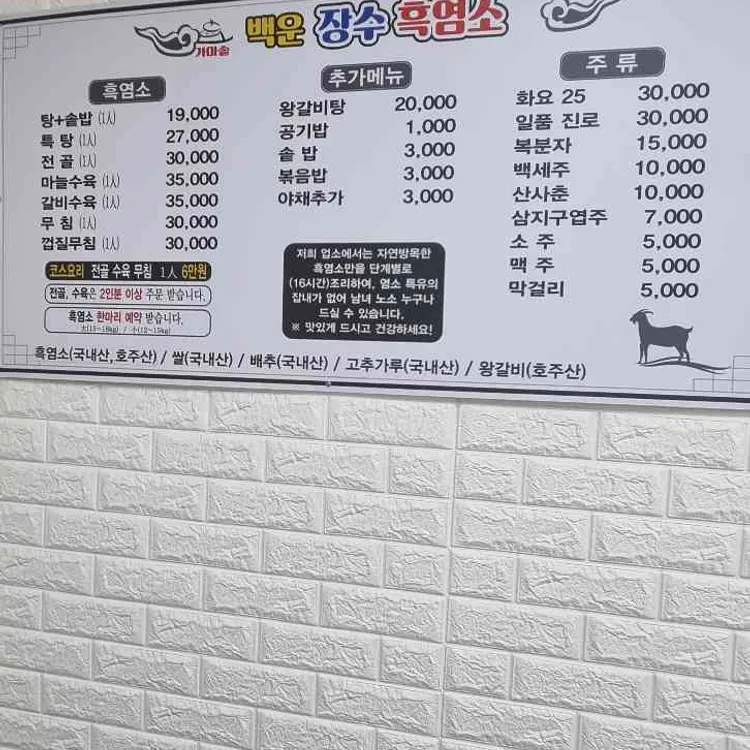 가마솥 백운 장수 흑염소
흑염소
탕+솥밥 (1人) 19,000
특 탕 (1人) 27,000
전 골 (1人) 30,000
마늘수육 (1人) 35,000
갈비수육 (1人) 35,000
무 침 (1人) 30,000
껍질무침 (1人) 30,000
코스요리 전골 수육 무침 1人 6만원
전골, 수육은 2인분 이상 주문 받습니다.
흑염소 한마리 예약 받습니다.
추가메뉴
왕갈비탕 20,000
공기밥 1,000
솥 밥 3,000
볶음밥 3,000
야채추가 3,000
저희 업소에서는 자연방목한
흑염소만을 단계별로
(16시간)조리하여, 염소 특유의
잡내가 없어 남녀 노소 누구나
드실 수 있습니다.
※ 맛있게 드시고 건강하세요!
주 류
화요 25 30,000
일품 진로 30,000
복분자 15,000
백세주 10,000
산사춘 10,000
삼지구엽주 7,000
소 주 5,000
맥 주 5,000
막걸리 5,000
흑염소(국내산,호주산) / 쌀(국내산) / 배추(국내산) / 고추가루(국내산) / 왕갈비(호주산)